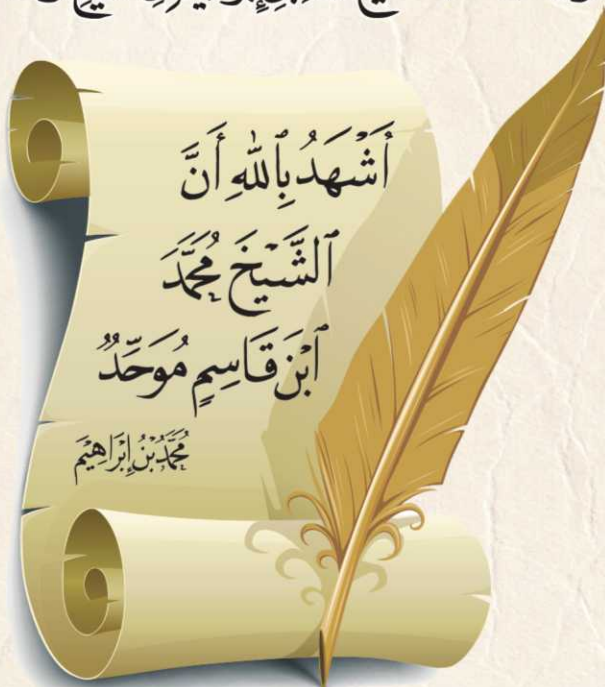 أَشْهَدُ بِٱللهِ أَنَّ
ٱلشَّيْخَ مُحَمَّدَ
ٱبْنَ قَاسِمٍ مُوَحِّدٌ
مُحَمَّدُ بْنُ إِبْرَاهِيْمَ